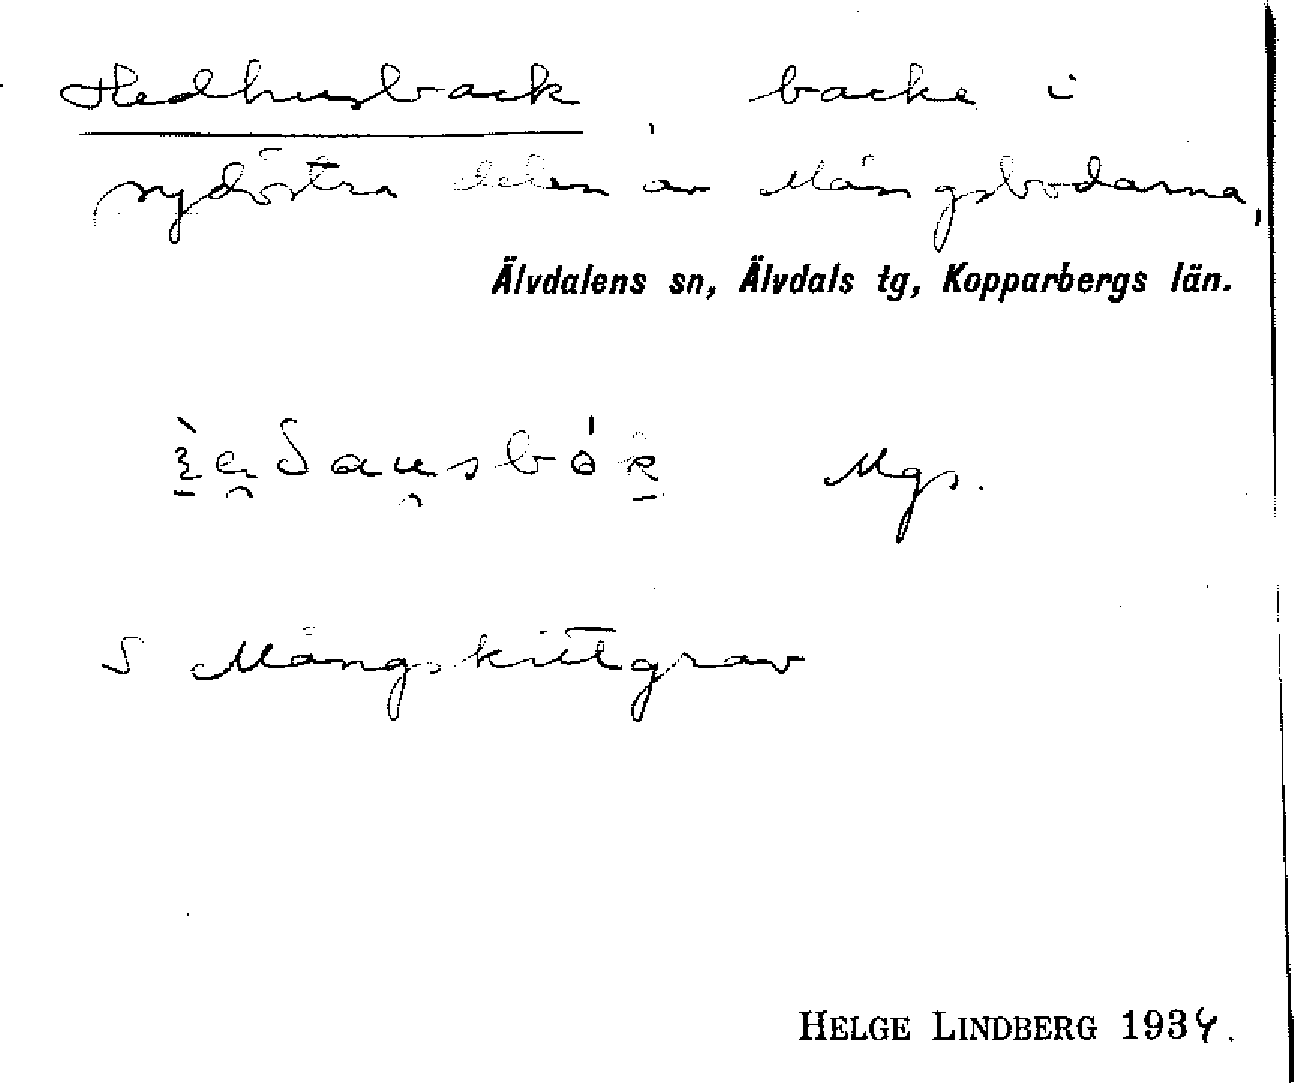 Hedhusback backe i
sydöstra delen av Mångsbodarna,
Älvdalens sn, Älvdals tg, Kopparbergs län.
Mgs.
S Mångskittgrav
HELGE LINDBERG 1934.